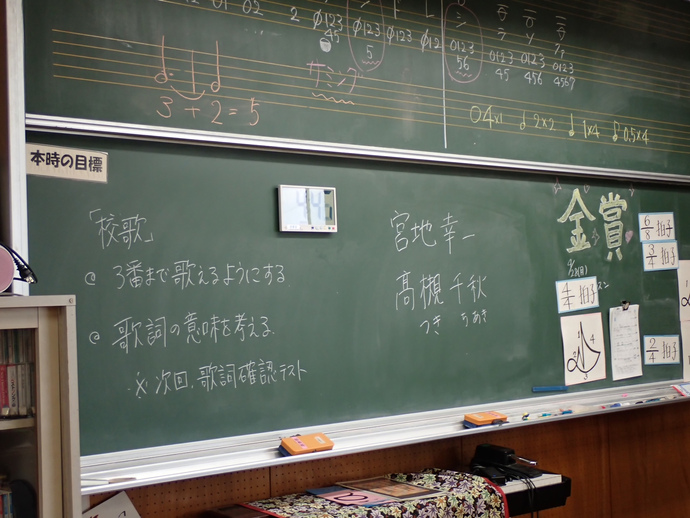 01 02
2
0123
45
0123
5
0123
012
シ
0123
56
ラ
0123
45
ソ
0123
456
ファ
0123
4567
サミング
3 + 2 = 5
4×1
2×2
1×4
0.5×4
本時の目標
「校歌」
@ 3番まで歌えるようにする
@ 歌詞の意味を考える
※次回、歌詞確認テスト
宮地幸一
高槻千秋
つき ちあき
金賞
6/8 拍子
3/4 拍子
4/4 拍子
2/4 拍子